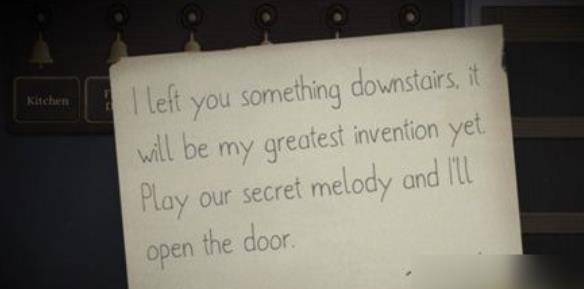 Kitchen
I left you something downstairs, it
will be my greatest invention yet.
Play our secret melody and I'll
open the door.